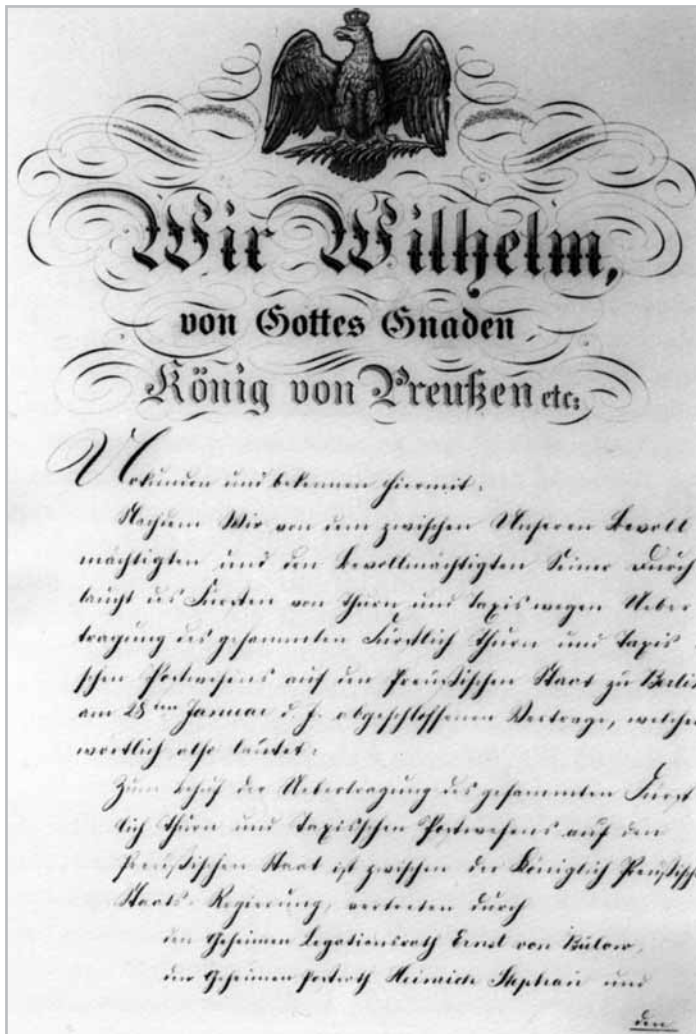 Wir Wilhelm,
von Gottes Gnaden
König von Preußen etc:
Urkunden und bekennen hiermit:
Nachdem Wir von dem zwischen Unseren Bevoll
mächtigten und den Bevollmächtigten Seiner Durch
laucht des Fürsten von Thurn und Taxis wegen Ueber
tragung des gesammten Fürstlich Thurn und Taxis
schen Postwesens auf den Preußischen Staat zu Berlin
am 28ten Januar d. J. abgeschlossenen Vertrage, welcher
wörtlich also lautet:
Zum Behuf der Uebertragung des gesammten Fürst
lich Thurn und Taxisschen Postwesens auf den
Preußischen Staat ist zwischen der Königlich Preußische
Staats-Regierung, vertreten durch
den Geheimen Legationsrath Ernst von Bülow,
den Geheimen Postrath Heinrich Stephan und
den